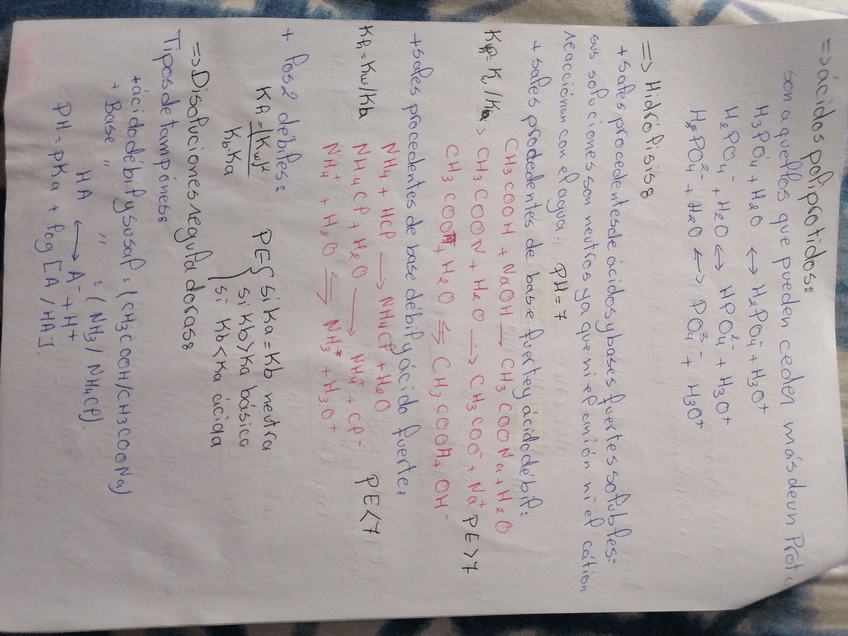 ⇒ácidos polipróticos:
son aquellos que pueden ceden más de un Prot
H3PO4 + H2O ↔ H2PO4- + H3O+
H2PO4- + H2O ↔ HPO4 2- + H3O+
H2PO4 2- + H2O ↔ PO4 3- + H3O+
⇒ Hidrólisis:
+ sales procedentes de ácidos y bases fuertes solubles:
sus soluciones son neutros ya que ni el anión ni el catión
reacciónan con el agua. PH=7
+ sales prodedentes de base fuerte y ácido débil:
CH3COOH + NaOH → CH3COONa + H2O
Kh = Kw/Ka > CH3COON + H2O → CH3COO- + Na+ PE>7
CH3COO + H2O ⇆ CH3COOH + OH-
+ sales procedentes de base débil y ácido fuerte:
NH4 + HCl → NH4Cl + H2O PE<7
Kh = Kw/Kb NH4Cl + H2O → NH4+ + Cl-
NH4+ + H2O ⇆ NH3 + H3O+
+ los 2 débiles:
KA = (Kw)²/Kb·Ka PE{ si Ka = Kb neutra
si Kb > Ka básica
si Kb < Ka ácida
⇒ Disoluciones reguladoras:
Tipos de tampónes:
+ ácido débil y su sal: (CH3COOH/CH3COONa)
+ Base " " : (NH3/NH4Cl).
HA ↔ A- + H+
PH = pKa + log [A/HA].